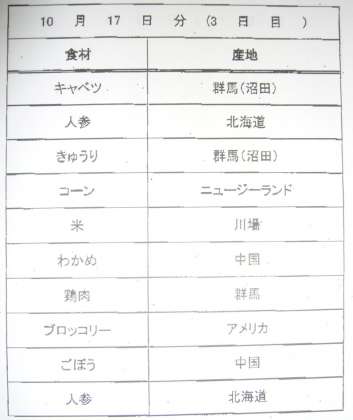 10 月 17 日 分 (3 日 目 )
食材 産地
キャベツ 群馬(沼田)
人参 北海道
きゅうり 群馬(沼田)
コーン ニュージーランド
米 川場
わかめ 中国
鶏肉 群馬
ブロッコリー アメリカ
ごぼう 中国
人参 北海道